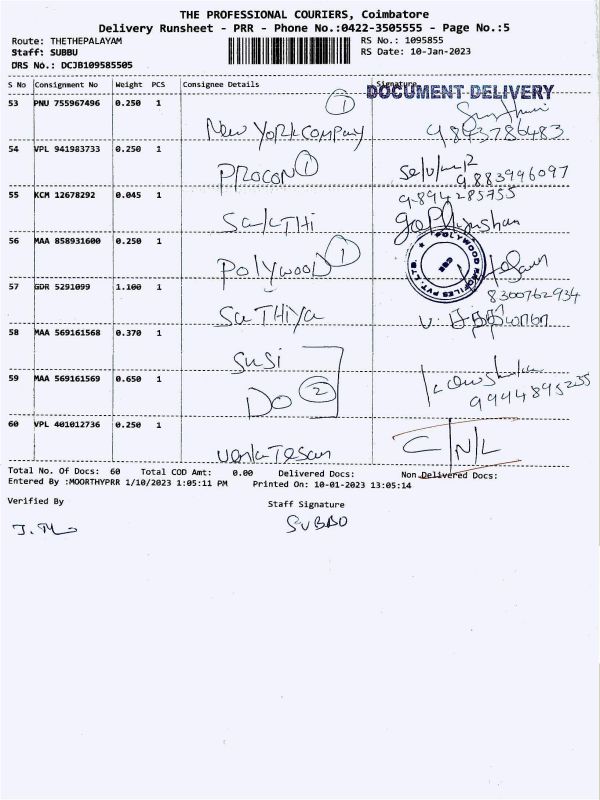 THE PROFESSIONAL COURIERS, Coimbatore
Delivery Runsheet - PRR - Phone No.:0422-3505555 - Page No.:5
Route: THETHEPALAYAM RS No.: 1095855
Staff: SUBBU RS Date: 10-Jan-2023
DRS No.: DCJB109585505
S No Consignment No Weight PCS Consignee Details Signature
DOCUMENT DELIVERY
53 PNU 755967496 0.250 1 New York Company 1
9843786483
54 VPL 941983733 0.250 1 PROCON 1
9883996097
9894285755
55 KCM 12678292 0.045 1 SakTHi
56 MAA 858931600 0.250 1 Polywood 1
POLYWOOD PROFILES PVT. LTD. CBE
57 GDR 5291099 1.100 1 SaTHiya
8300762934
58 MAA 569161568 0.370 1 Susi
59 MAA 569161569 0.650 1 Do 2
9994895235
60 VPL 401012736 0.250 1 venkaTesan C/N/L
Total No. Of Docs: 60 Total COD Amt: 0.00 Delivered Docs: Non Delivered Docs:
Entered By :MOORTHYPRR 1/10/2023 1:05:11 PM Printed On: 10-01-2023 13:05:14
Verified By Staff Signature
SUBBO